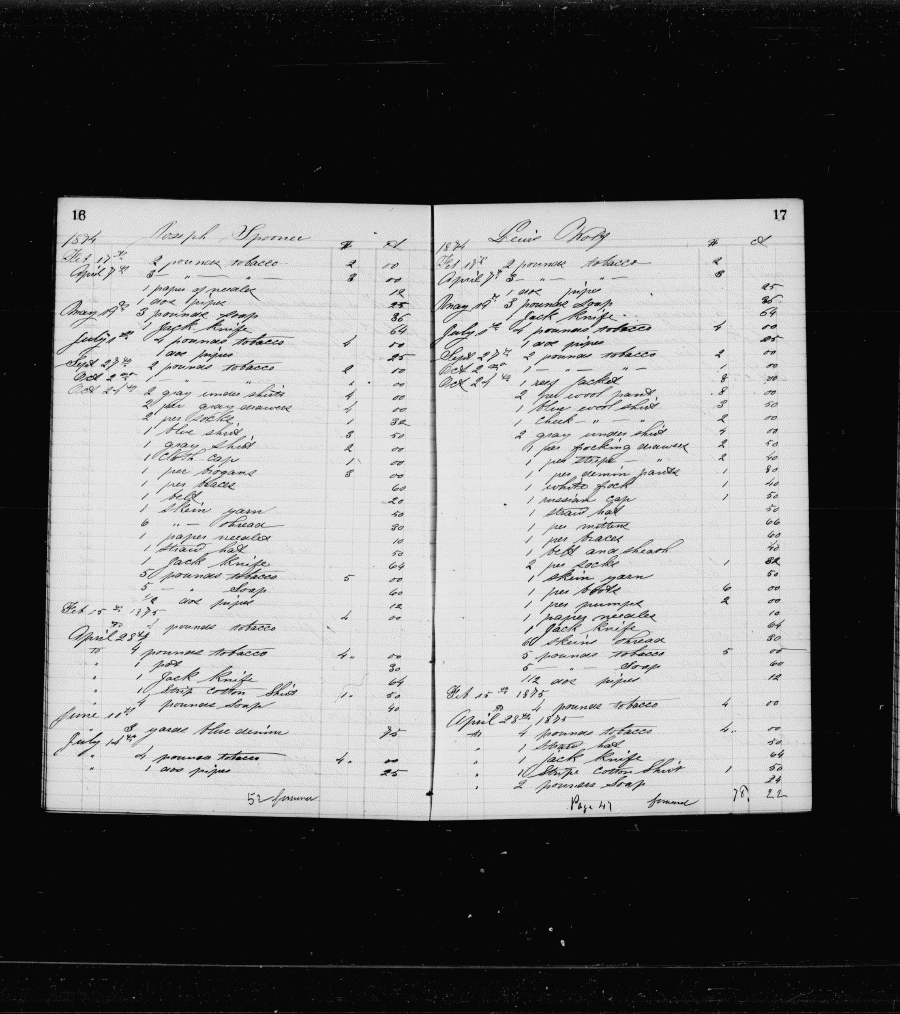 16
Joseph Spooner
1874 $ ct
Feb 17th 2 pounds tobacco 2 00
April 7th 3 " — " 3 00
1 paper of needles 12
1 dos pipes 25
May 19th 3 pounds soap 36
1 Jack Knife 64
July 1st 4 pounds tobacco 4 00
1 dos pipes 25
Sept 27th 2 pounds tobacco 2 00
Oct 2 1 " — " 1 00
Oct 24th 2 gray under shirts 4 00
2 per gray drawers 4 00
2 per socks 1 32
1 blue shirt 3 50
1 gray Shirt 2 00
1 Cloth cap 1 00
1 per brogans 3 00
1 per braces 60
1 belt 20
1 skein yarn 50
6 " — thread 30
1 paper needles 10
1 straw hat 50
1 Jack Knife 64
5 pounds tobacco 5 00
5 — " Soap 60
1/2 dos pipes 12
Feb 15th 1875
4 pounds tobacco 4 00
April 28th
4 pounds tobacco 4 00
" 1 pot 30
" 1 Jack Knife 64
" 1 Strip Cotton Shirt 1 50
" 4 pounds Soap 40
June 11th
" 3 yards blue denim 75
July 14th
" 4 pounds tobacco 4 00
" 1 dos pipes 25
52
17
Louis
1874 $ ct
Feb 17th 2 pounds tobacco 2
April 7th 3 " — — 3
1 dos pipes 25
May 19th 3 pounds Soap 36
1 Jack Knife 64
July 1st 4 pounds tobacco 4 00
1 dos pipes 25
Sept 27th 2 pounds tobacco 2 00
Oct 2 1 — " — " 1 00
Oct 24th 1 rey Jacket 8 00
2 per wool pant 8 00
1 blue wool shirt 3 50
1 check — " " 2 00
2 gray under shirt 4 00
1 per frocking drawers 2 50
1 per stripe — " 2 40
1 per denim pants 1 80
1 white frock 1 40
1 russian cap 1 50
1 straw hat 50
1 per mittins 66
1 per braces 60
1 belt and sheath 40
2 per socks 1 32
1 skein yarn 50
1 per boots 6 00
1 per pumps 2 00
1 paper needles 10
1 Jack Knife 64
skeins thread 30
5 pounds tobacco 5 00
5 — " — Soap 60
1/2 dos pipes 12
Feb 15th 1875
4 pounds tobacco 4 00
April 28th 1875
4 pounds tobacco 4 00
" 1 Straw hat 50
" 1 Jack Knife 64
" 1 Stripe Cotton Shirt 1 50
" 2 pounds Soap 24
Page 47 78 22